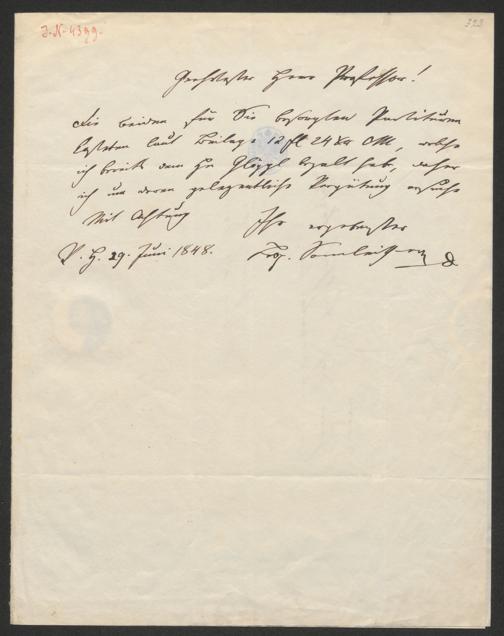 J.-N. 4399.
323
Geehrtester Herr Professor!
Die beiden für Sie besorgten Partituren
kosteten laut Beilage 12 fl 24 Xr CM, welche
ich bereits dem Hn Glöggl bezalt hab, daher
ich um deren gelegentliche Vergütung ersuche
Mit Achtung
Ihr ergebenster
V. H. 29. Juni 1848.
Sonnleithner